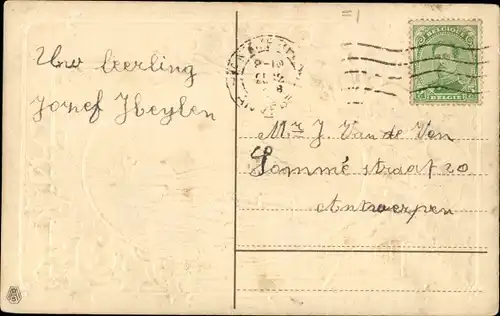 Uw leerling
Jozef Heylen
BELGIQUE
BELGIË
Mr J. Van de Ven
Lommé straat 20
Antwerpen